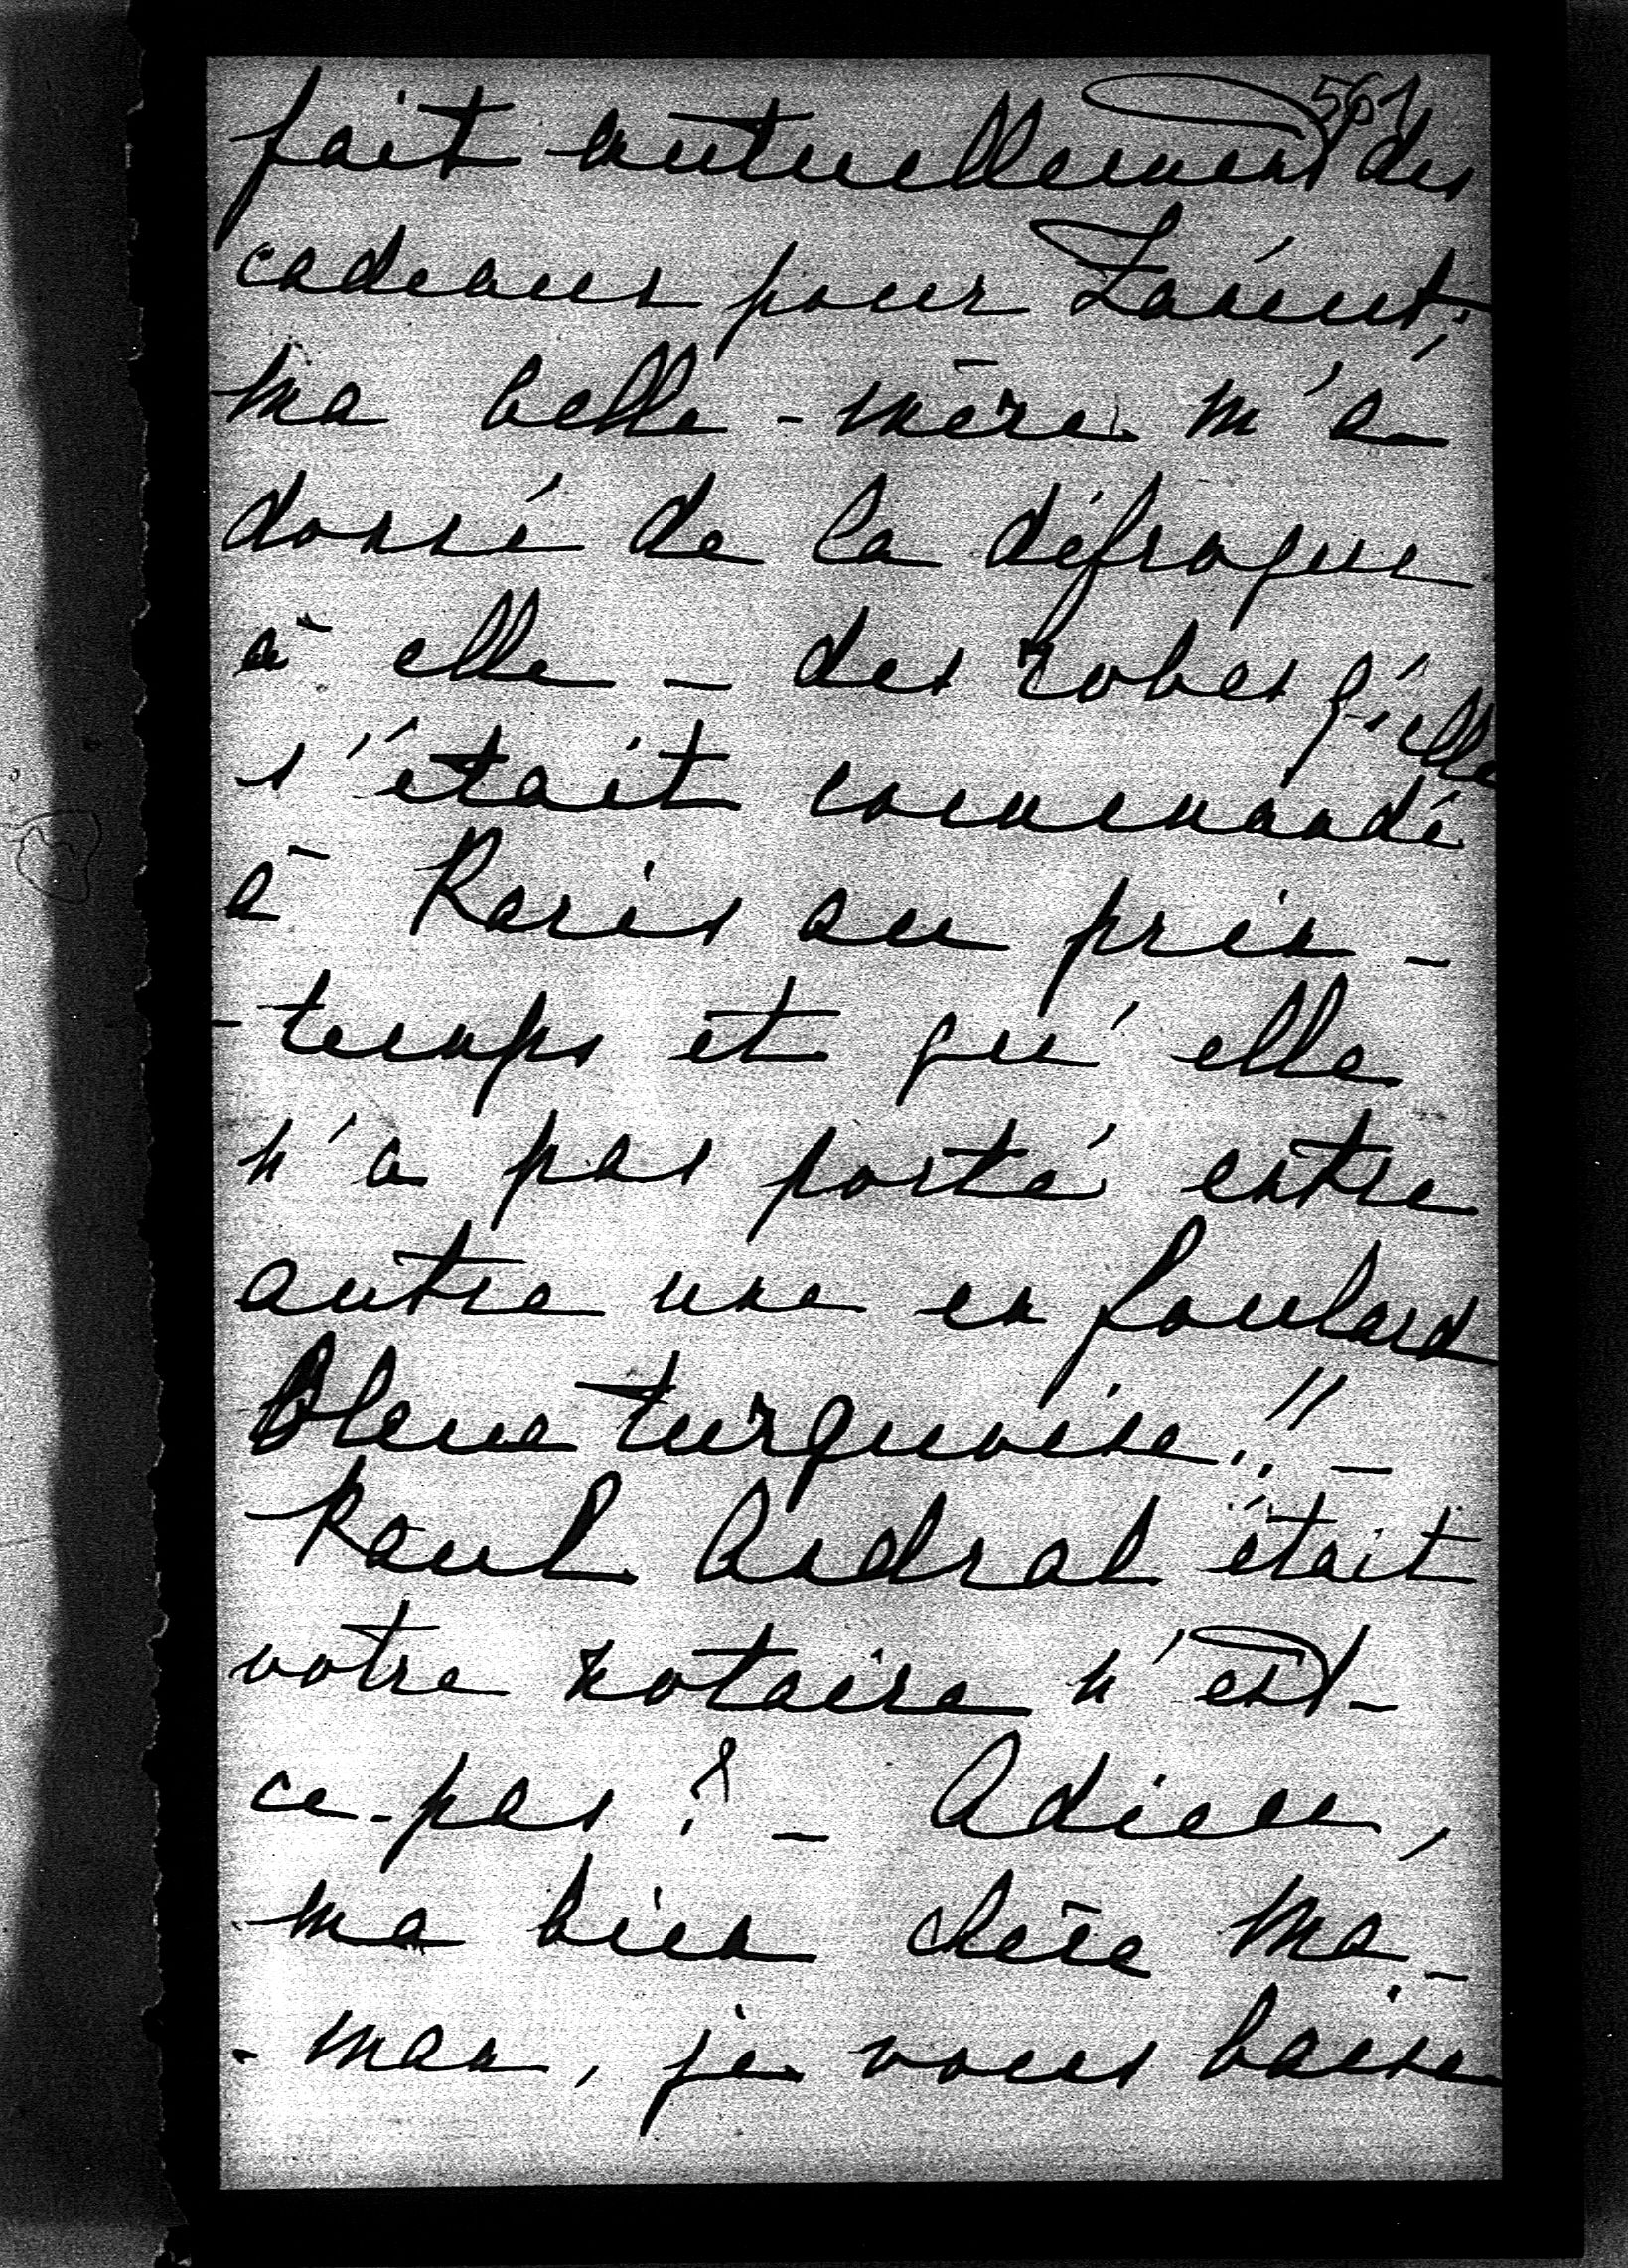 561
fait mutuellement des
cadeaux pour Lancut;
ma belle-mère m'a
donné de la défroque
à elle – des robes q'elle
s'était commandé
à Paris au prin-
-temps et qu'elle
n'a pas porté entre
autre une en foulard
bleue turquoise!! –
Paul Andral était
votre notaire n'est-
ce-pas? – Adieu,
ma bien chère Ma-
-man, je vous baise